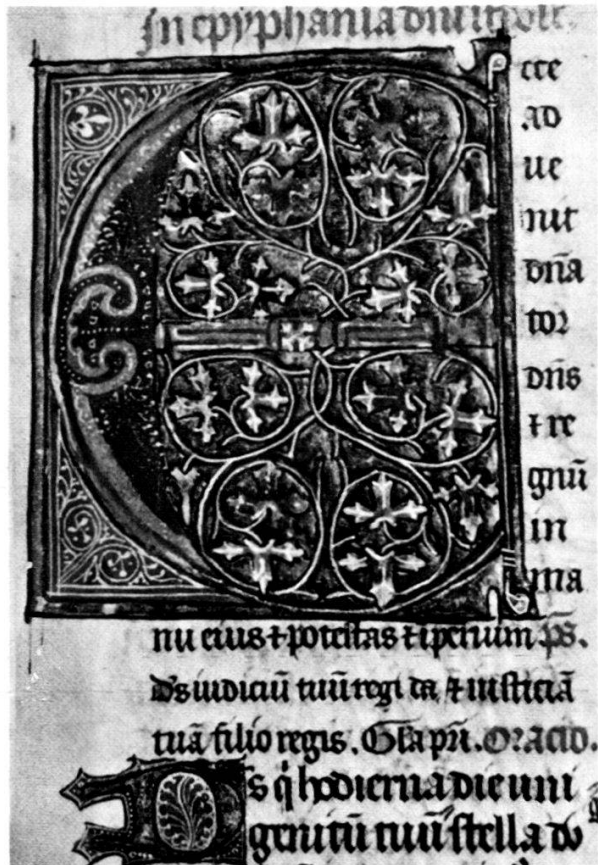 In epyphania dni itroit.
Ecce
ad
ue
nit
dn̄a
tor
dn̄s
⁊ re
gnū
in
ma
nu eius ⁊ potestas ⁊ iperium p̄s.
Ds iudiciū tuū regi da ⁊ iusticiā
tuā filio regis. Gla pri. Oracio.
Ds q̇ hodierna die uni
genitū tuū stella du